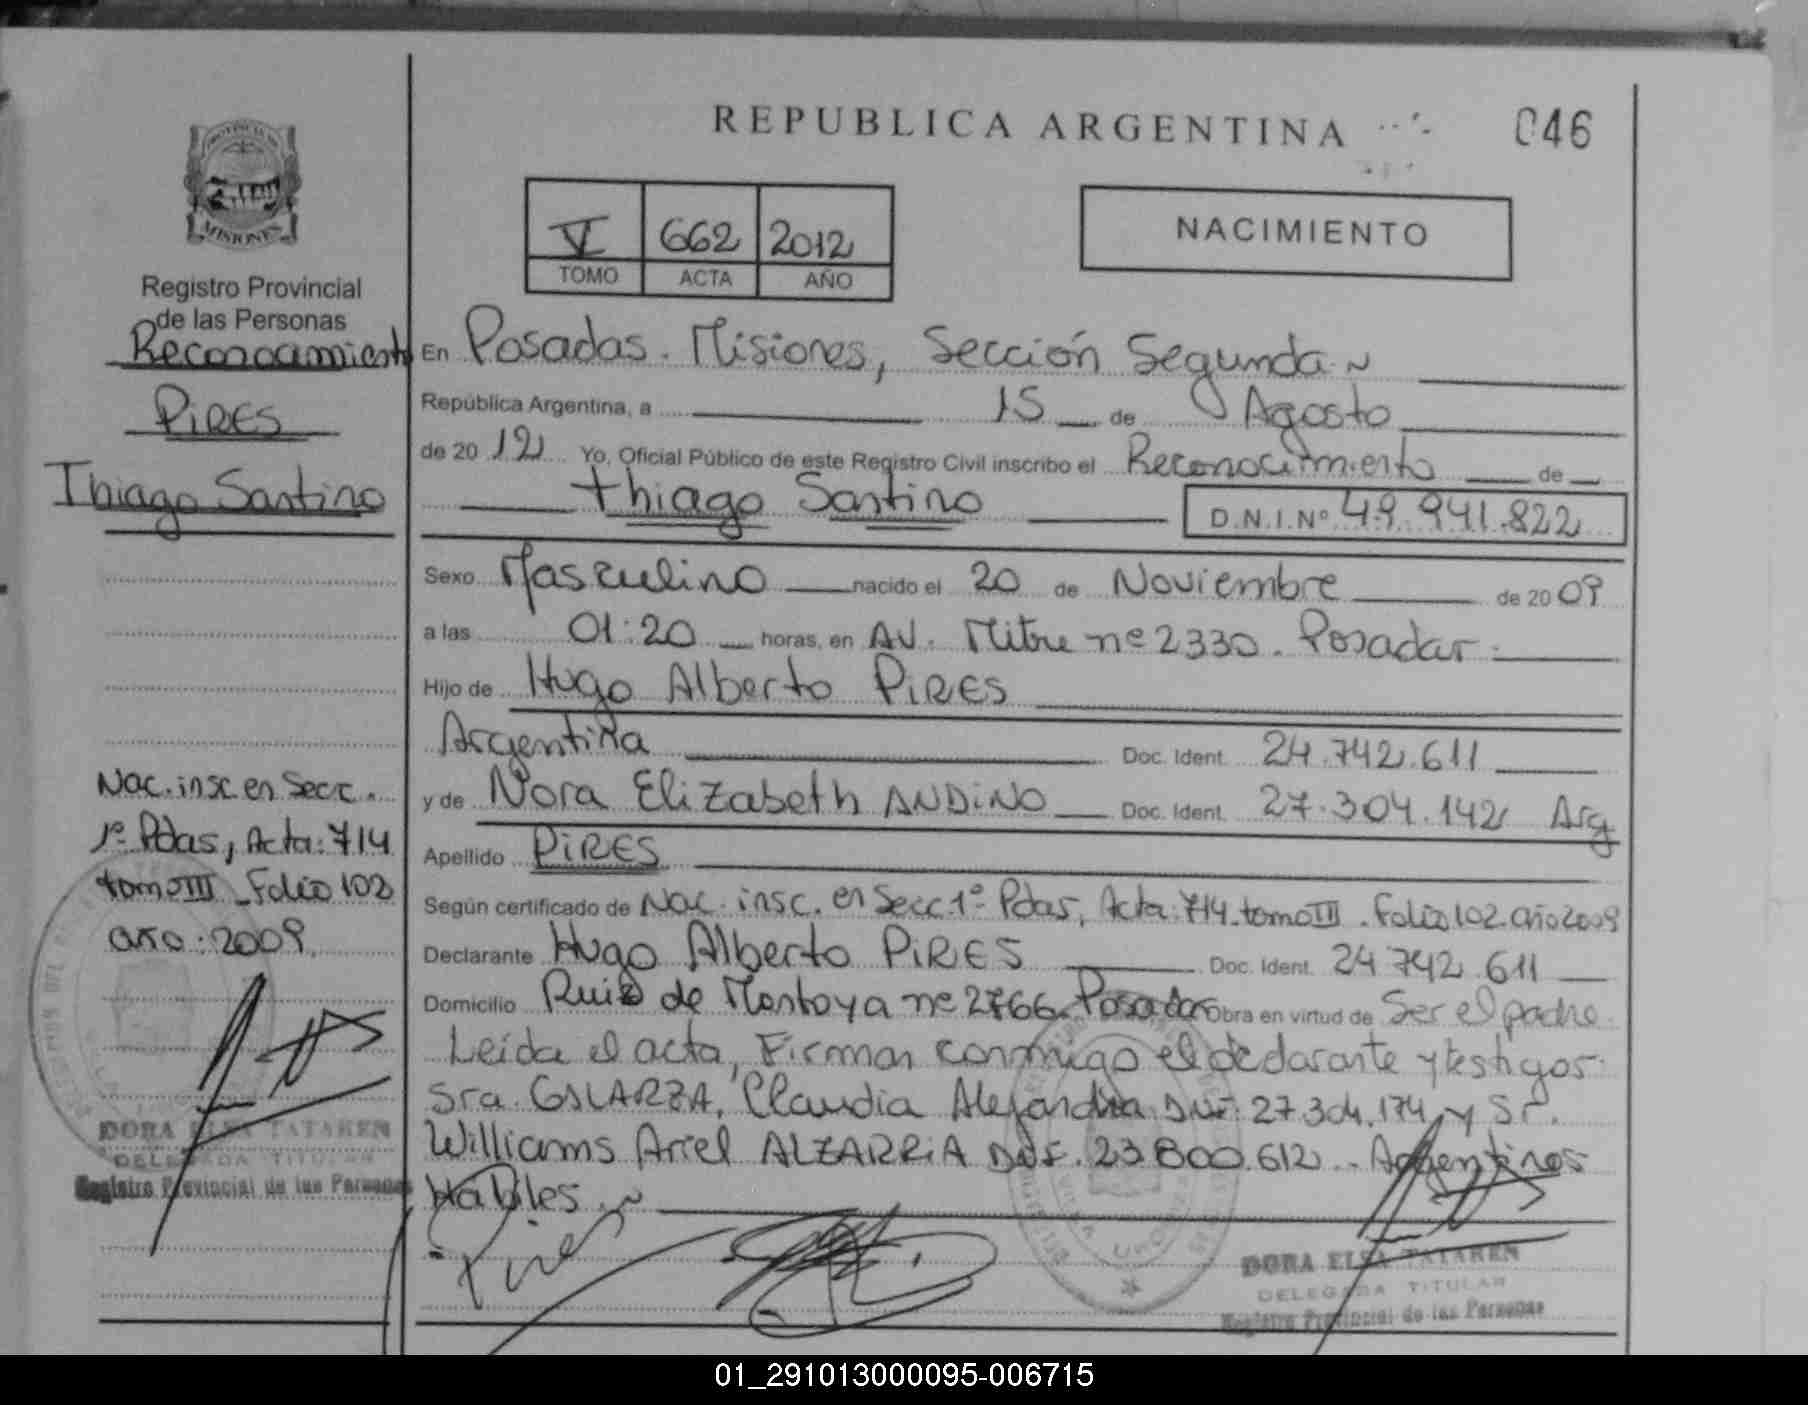 REPUBLICA ARGENTINA
046
PROVINCIA DE
MISIONES
VI 662 2012
TOMO ACTA AÑO
NACIMIENTO
Registro Provincial
de las Personas
Reconocimiento
PIRES
Thiago Santino
En Posadas. Misiones, Sección Segunda ~
República Argentina, a 15 de Agosto
de 2012 Yo, Oficial Público de este Registro Civil inscribo el Reconocimiento de
Thiago Santino D.N.I.Nº 49.941.822
Sexo Masculino nacido el 20 de Noviembre de 2009
a las 01:20 horas, en AV. Mitre nº 2330. Posadas.
Hijo de Hugo Alberto PIRES
Argentina Doc. Ident. 24.742.611
y de Nora Elizabeth ANDINO Doc. Ident. 27.304.142 Arg
Apellido PIRES
Según certificado de Nac. insc. en Secc. 1º Pdas, Acta: 714. tomo III. Folio 102. año 2009
Declarante Hugo Alberto PIRES Doc. Ident. 24.742.611
Domicilio Ruiz de Montoya nº 2766. Posadas Obra en virtud de Ser el padre.
Leída el acta, Firman conmigo el declarante y testigos:
Sra. GALARZA, Claudia Alejandra D.N.I. 27.304.174, y Sr.
Williams Ariel ALZARRIA D.N.I. 23.800.612. Argentinos
Habiles. ~
Nac. insc. en Secc.
1º Pdas, Acta: 714
tomo III _ Folio 102
año: 2009.
DORA ELSA TATAREN
DELEGADA TITULAR
Registro Provincial de las Personas
Pires
DORA ELSA TATAREN
DELEGADA TITULAR
Registro Provincial de las Personas
01_291013000095-006715